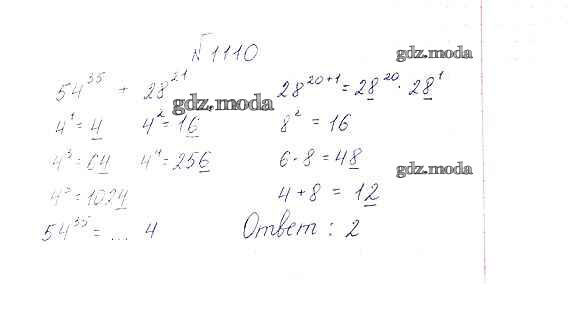 №1110
gdz.moda
54^35 + 28^21
28^20+1 = 28^20 · 28^1
gdz.moda
4^1 = 4 4^2 = 16
8^2 = 16
4^3 = 64 4^4 = 256
6·8 = 48
gdz.moda
4^5 = 1024
4+8 = 12
54^35 = ... 4
Ответ: 2